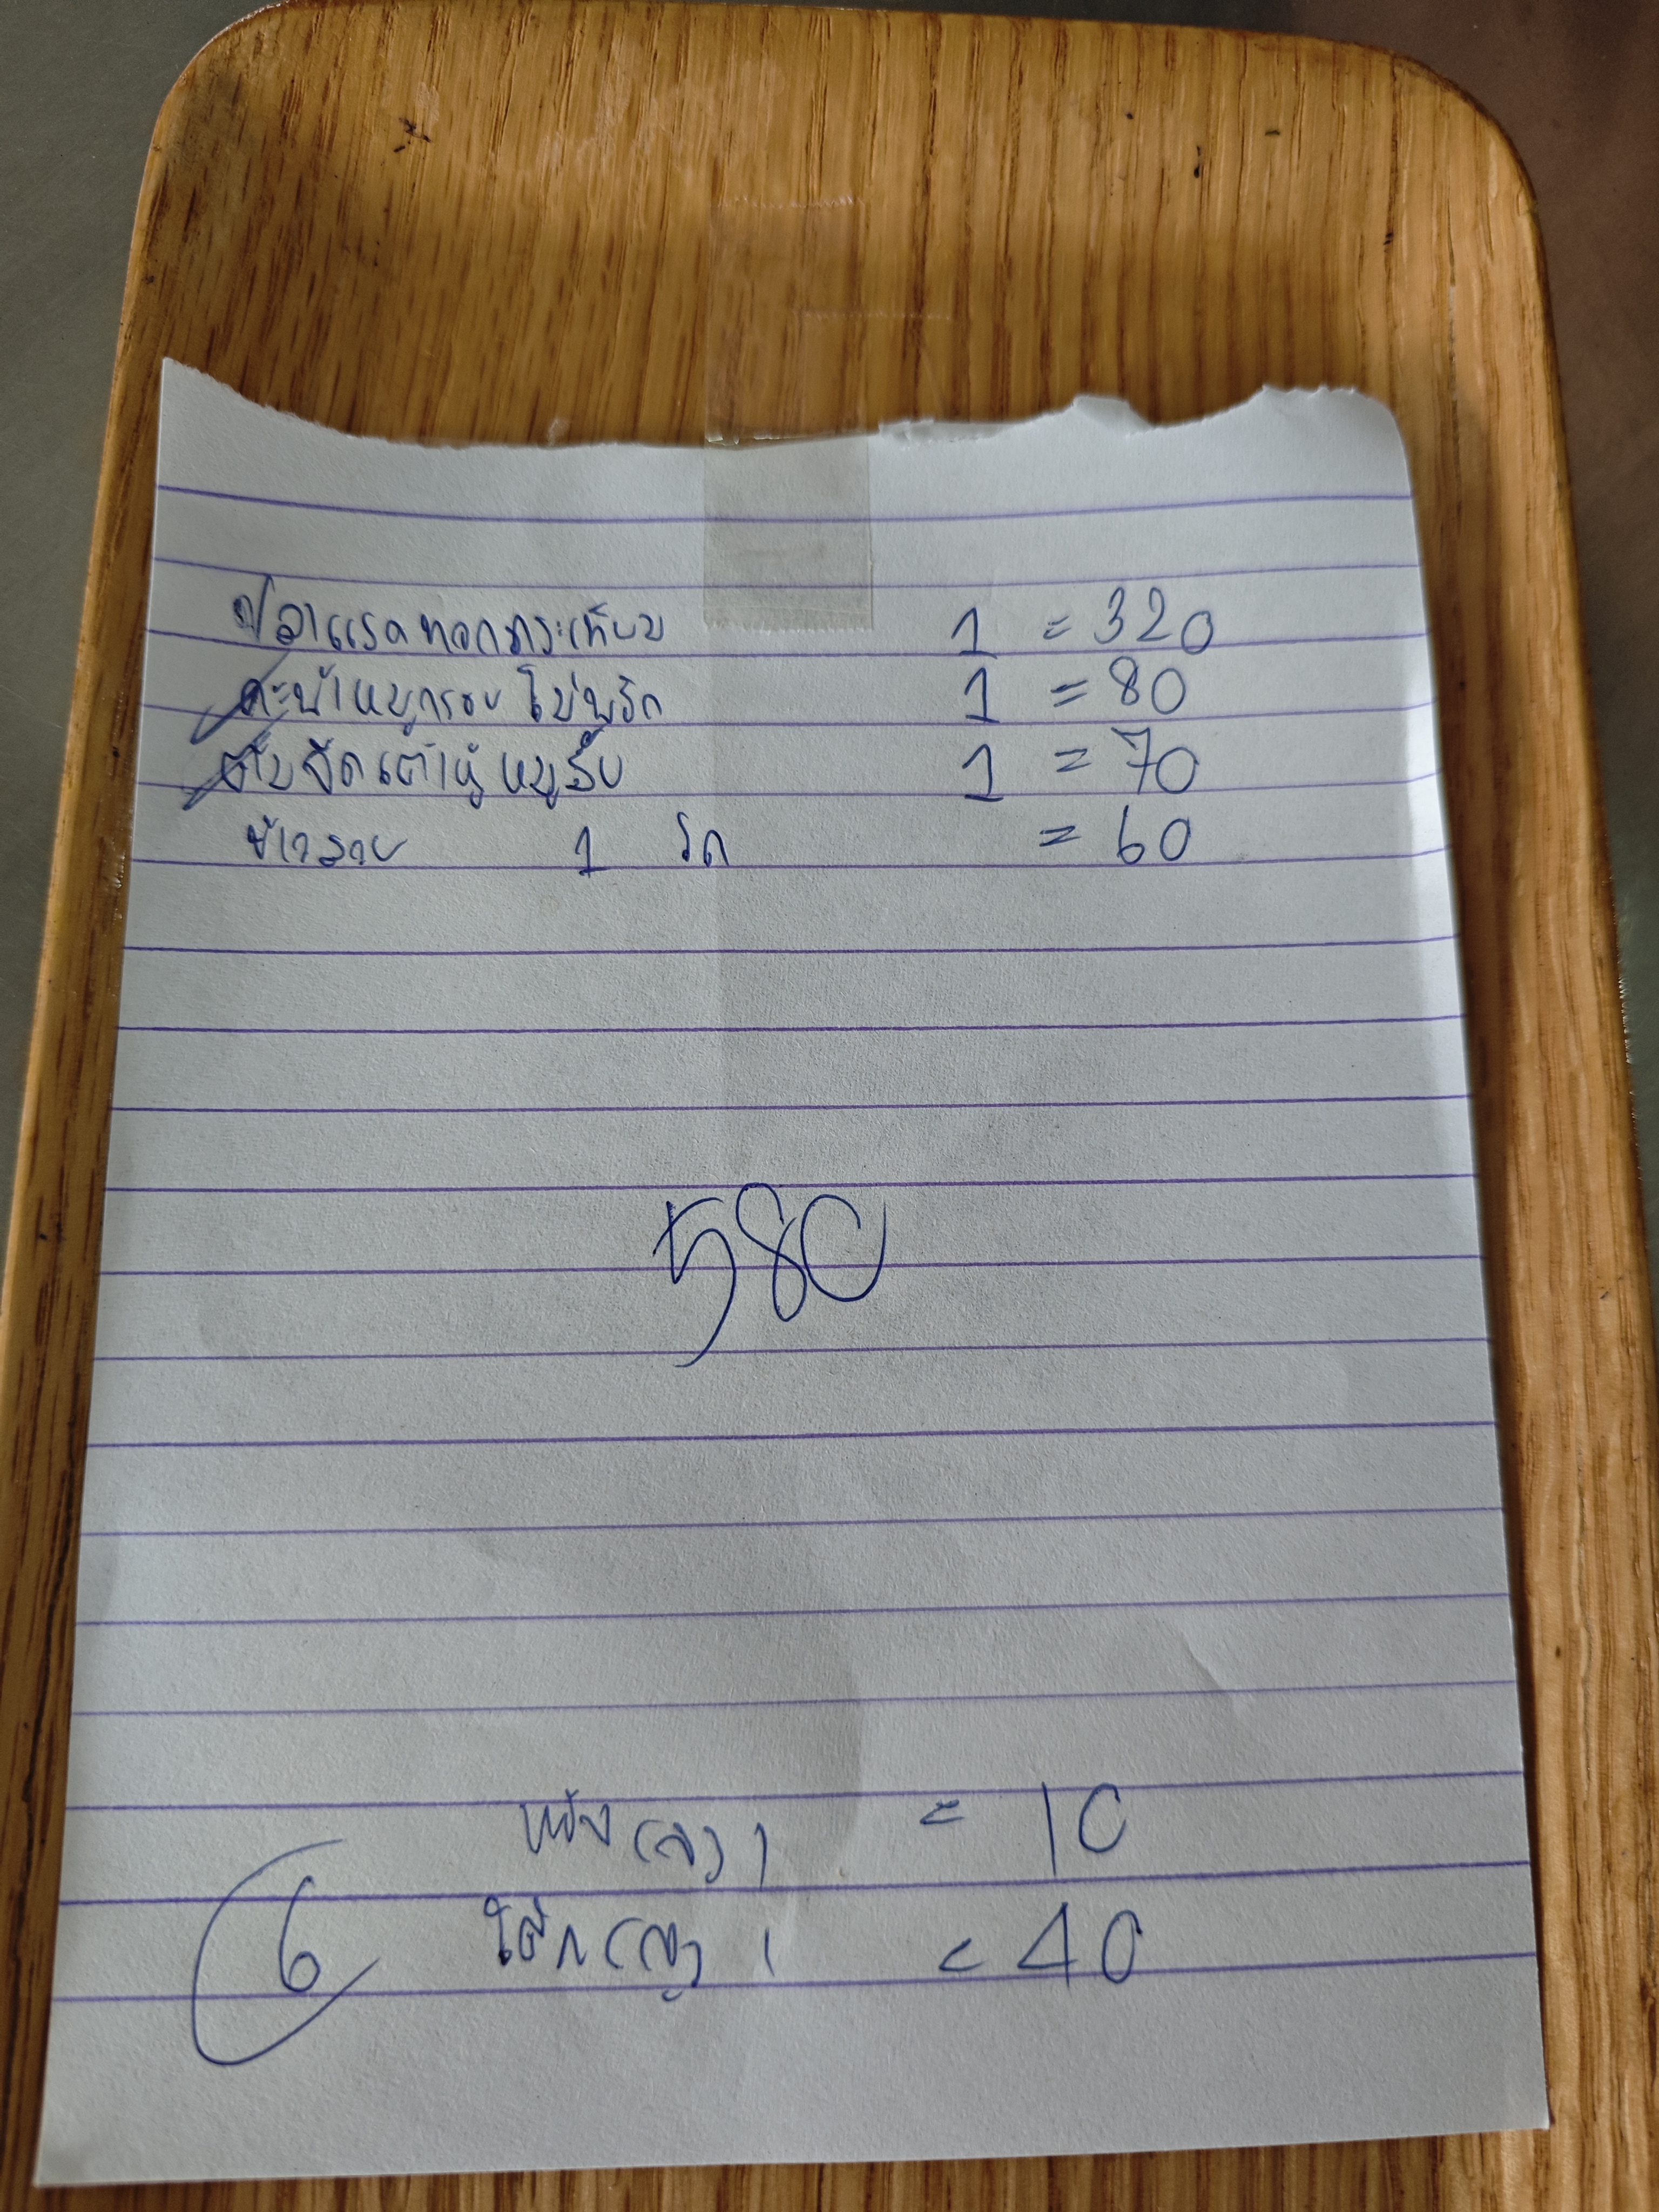 ปลาแรดทอดกระเทียม 1 = 320
คะน้าหมูกรอบ ไม่พริก 1 = 80
ต้มจืดเต้าหู้หมูสับ 1 = 70
ข้าวสวย 1 โถ = 60
580
แข็ง (ล) 1 = 10
โค้ก (ญ) 1 = 40
6